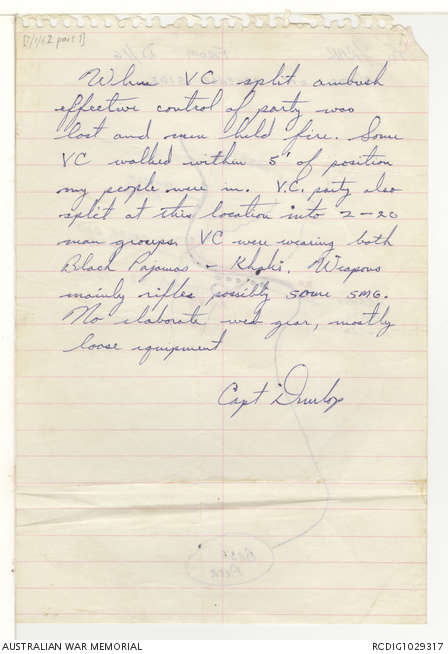 [7/1/62 part 1]
When VC split ambush
effective control of party was
lost and men held fire. Some
VC walked within 5' of position
my people were in. V.C. party also
split at this location into 2-20
man groups. VC were wearing both
Black Pajamas & Khaki. Weapons
mainly rifles possibly some SMG.
No elaborate web gear, mostly
loose equipment
Capt Dunlop
AUSTRALIAN WAR MEMORIAL
RCDIG1029317